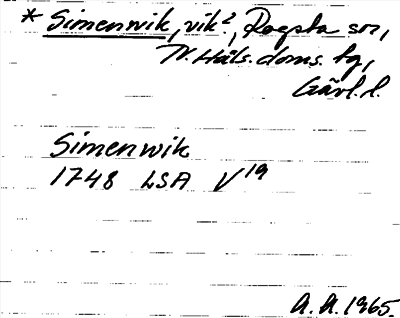 * Simenwik, vik?, Rogsta sn,
N. Häls. doms. tg,
Gävl. l.
Simenwik
1748 LSA V19
A. A. 1965.